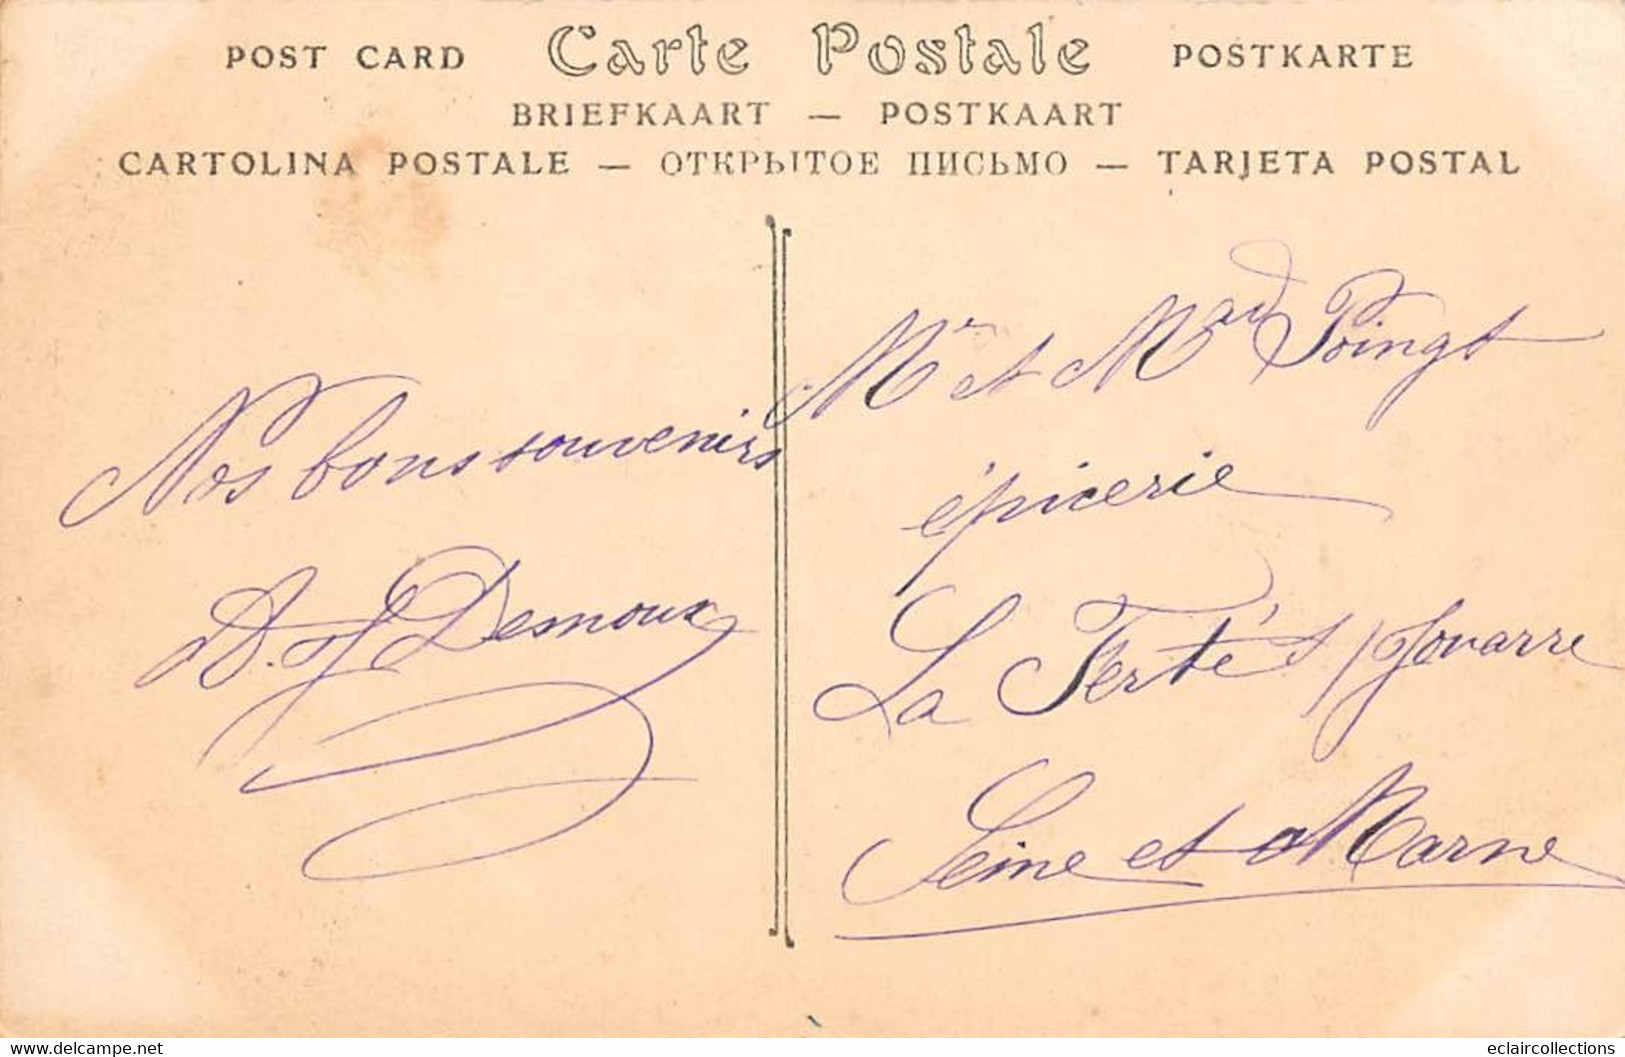 POST CARD Carte Postale POSTKARTE
BRIEFKAART — POSTKAART
CARTOLINA POSTALE — ОТКРЫТОЕ ПИСЬМО — TARJETA POSTAL
Nos bons souvenirs
Demoux
Mr et Mad Poingt
épicerie
La Ferté s/ Jouarre
Seine et Marne
delcampe.net
eclaircollections